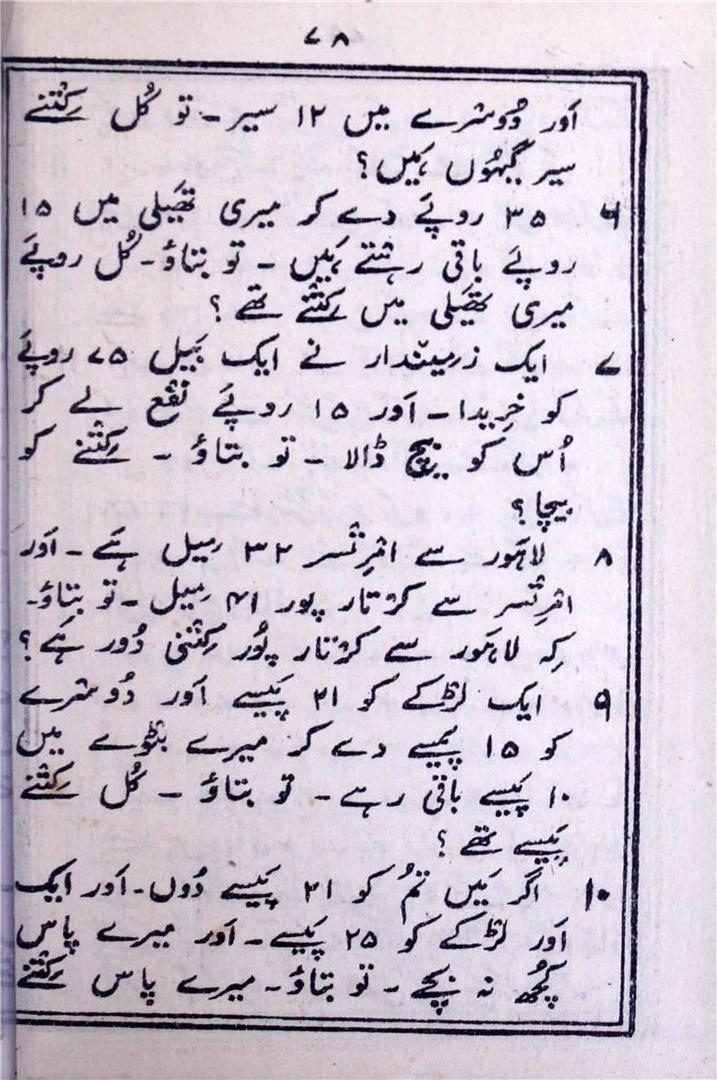 ۷۸
اَور دُوسْرے میں ۱۲ سیر ۔ تو کُل کِتْنے
سیر گیہُوں ہَیں؟
۶ ۳۵ روپَے دے کر میری تھَیلی میں ۱۵
روپَے باقی رہْتے ہَیں ۔ تو بتاؤ ۔ کُل روپَے
میری تھَیلی میں کِتْنے تھے؟
۷ ایک زمِینْدار نے ایک بَیل ۷۵ روپَے
کو خرِیدا ۔ اَور ۱۵ روپَے نفْع لے کر
اُس کو بیچ ڈالا ۔ تو بتاؤ ۔ کِتْنے کو
بیچا؟
۸ لاہَور سے امْرِتْسر ۳۲ مِیل ہَے ۔ اَور
امْرِتْسر سے کرْتار پور ۴۱ مِیل ۔ تو بتاؤ ۔
کِہ لاہَور سے کرْتار پُور کِتْنی دُور ہَے؟
۹ ایک لڑکے کو ۲۱ پَیسے اَور دُوسْرے
کو ۱۵ پَیسے دے کر میرے بٹْوے میں
۱۰ پَیسے باقی رہے ۔ تو بتاؤ ۔ کُل کِتْنے
پَیسے تھے؟
۱۰ اگر مَیں تُم کو ۲۱ پَیسے دُوں ۔ اَور ایک
اَور لڑکے کو ۲۵ پَیسے ۔ اَور میرے پاس
کُچھ نہ بچے ۔ تو بتاؤ ۔ میرے پاس کِتْنے